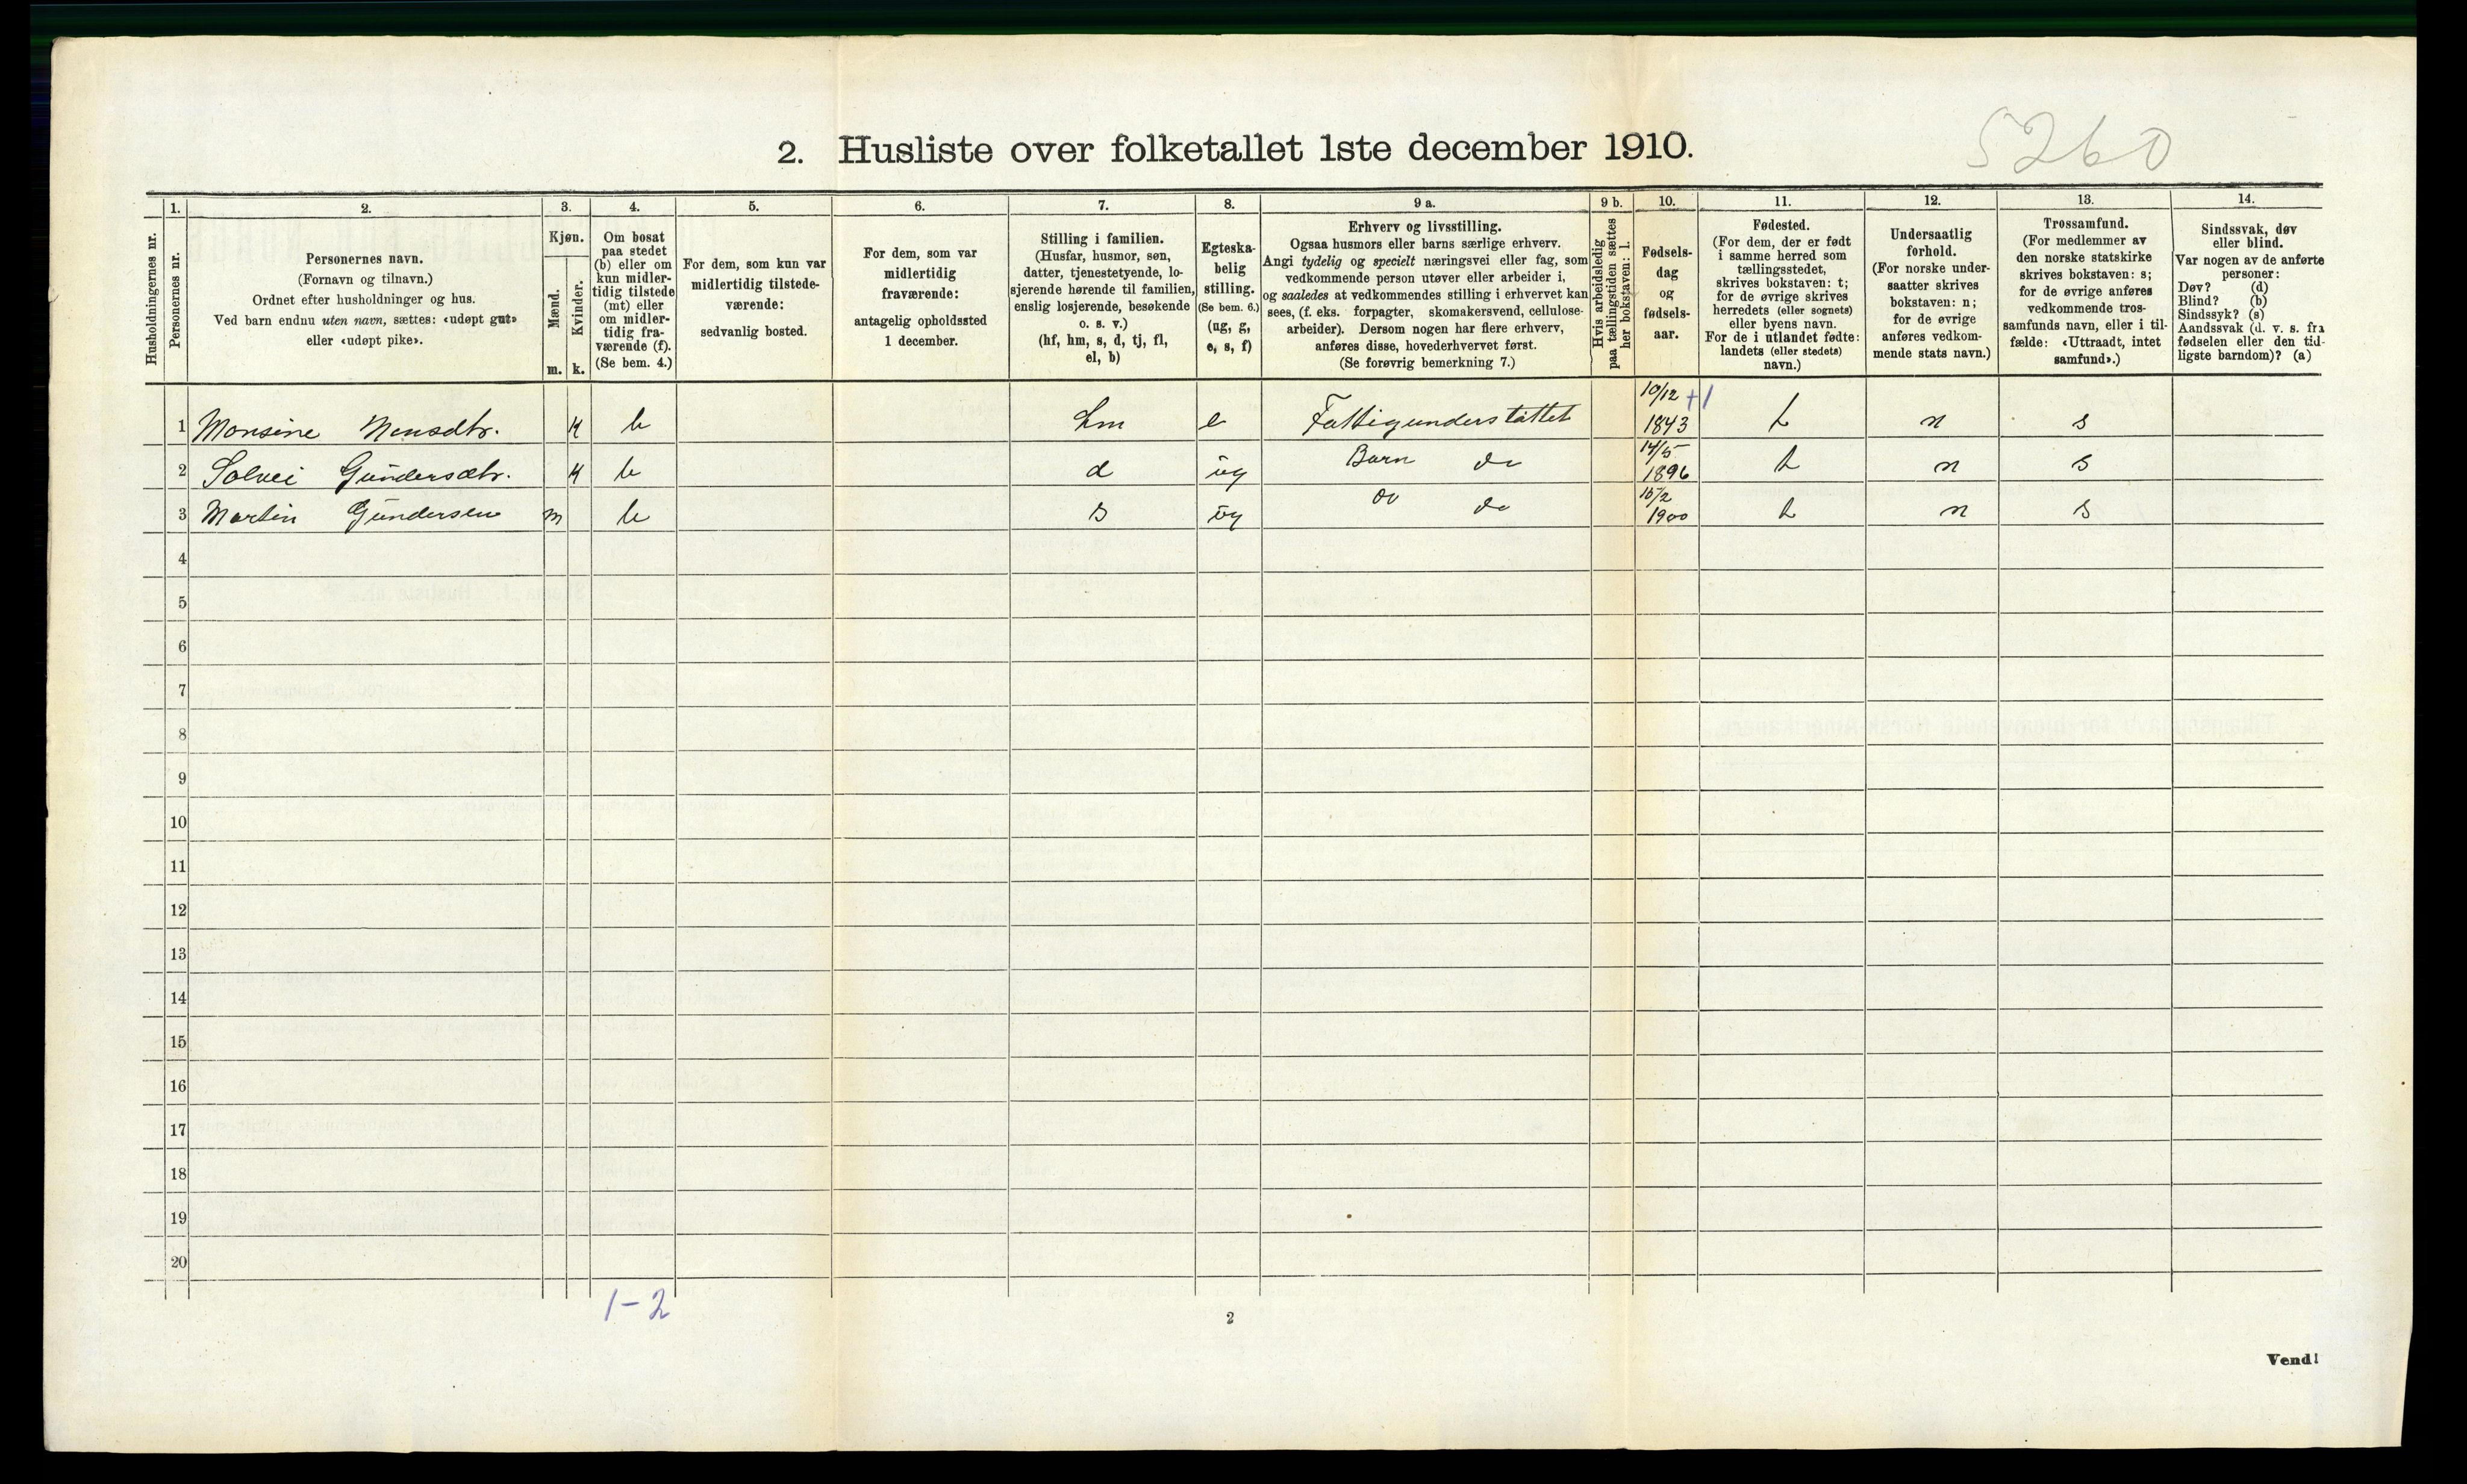 5260
2. Husliste over folketallet 1ste december 1910.
Husholdningernes nr.
1.
Personernes nr.
2.
Personernes navn.
(Fornavn og tilnavn.)
Ordnet efter husholdninger og hus.
Ved barn endnu uten navn, sættes: «udøpt gut»
eller «udøpt pike».
3.
Kjøn.
Mænd.
Kvinder.
m. k.
4.
Om bosat
paa stedet
(b) eller om
kun midler-
tidig tilstede
(mt) eller
om midler-
tidig fra-
værende (f).
(Se bem. 4.)
5.
For dem, som kun var
midlertidig tilstede-
værende:
sedvanlig bosted.
6.
For dem, som var
midlertidig
fraværende:
antagelig opholdssted
1 december.
7.
Stilling i familien.
(Husfar, husmor, søn,
datter, tjenestetyende, lo-
sjerende hørende til familien,
enslig losjerende, besøkende
o. s. v.)
(hf, hm, s, d, tj, fl,
el, b)
8.
Egteska-
belig
stilling.
(Se bem. 6.)
(ug, g,
e, s, f)
9 a.
Erhverv og livsstilling.
Ogsaa husmors eller barns særlige erhverv.
Angi tydelig og specielt næringsvei eller fag, som
vedkommende person utøver eller arbeider i,
og saaledes at vedkommendes stilling i erhvervet kan
sees, (f. eks. forpagter, skomakersvend, cellulose-
arbeider). Dersom nogen har flere erhverv,
anføres disse, hovederhvervet først.
(Se forøvrig bemerkning 7.)
9 b.
Hvis arbeidsledig
paa tællingstiden sættes
her bokstaven: l.
10.
Fødsels-
dag
og
fødsels-
aar.
11.
Fødested.
(For dem, der er født
i samme herred som
tællingsstedet,
skrives bokstaven: t;
for de øvrige skrives
herredets (eller sognets)
eller byens navn.
For de i utlandet fødte:
landets (eller stedets)
navn.)
12.
Undersaatlig
forhold.
(For norske under-
saatter skrives
bokstaven: n;
for de øvrige
anføres vedkom-
mende stats navn.)
13.
Trossamfund.
(For medlemmer av
den norske statskirke
skrives bokstaven: s;
for de øvrige anføres
vedkommende tros-
samfunds navn, eller i til-
fælde: «Uttraadt, intet
samfund».)
14.
Sindssvak, døv
eller blind.
Var nogen av de anførte
personer:
Døv? (d)
Blind? (b)
Sindssyk? (s)
Aandssvak (d. v. s. fra
fødselen eller den tid-
ligste barndom)? (a)
1 Monsine Monsdtr. k b hm e Fattigunderstøttet 10/12 +1 1843 t n s
2 Solvei Gundersdtr. k b d ug Barn do 14/5 1896 t n s
3 Martin Gundersen m b s ug do do 15/2 1900 t n s
4
5
6
7
8
9
10
11
12
13
14
15
16
17
18
19
20
1-2
2
Vend!